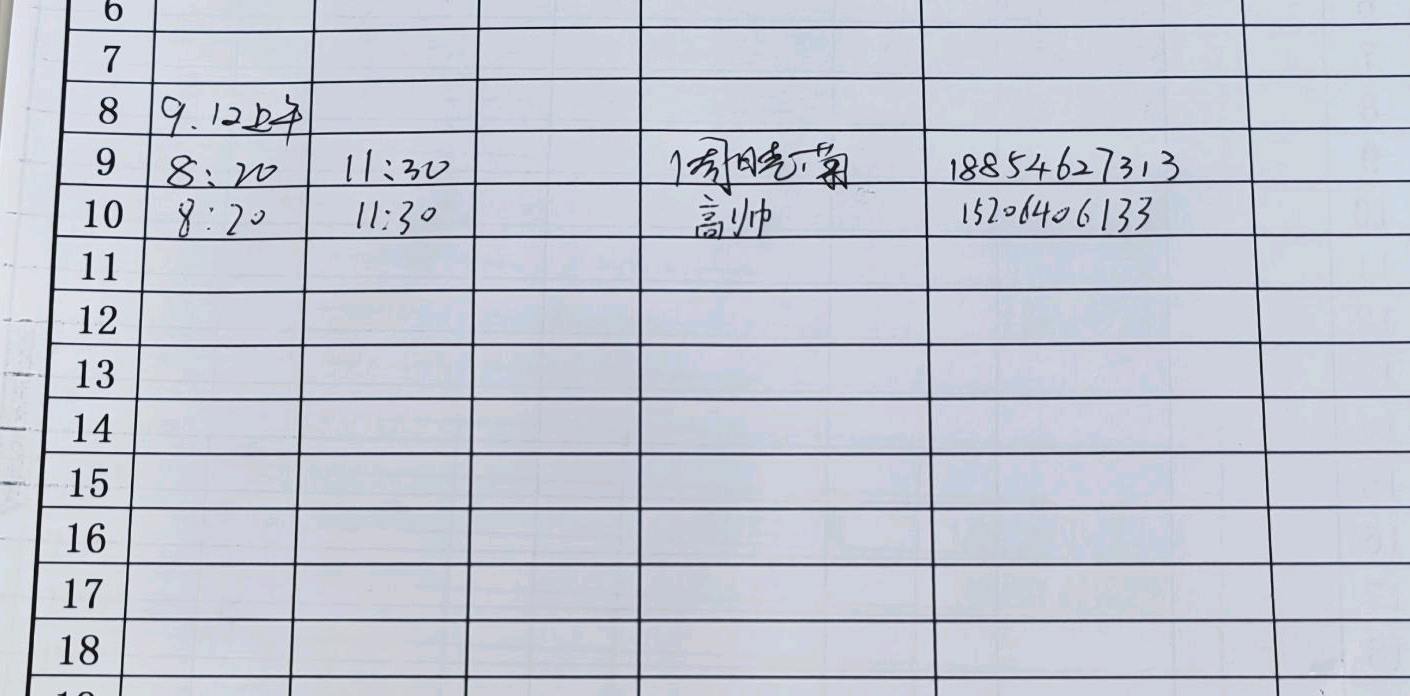 6
7
8 9.12上午
9 8:20 11:30 晓菊 18854627313
10 8:20 11:30 高帅 15206406133
11
12
13
14
15
16
17
18